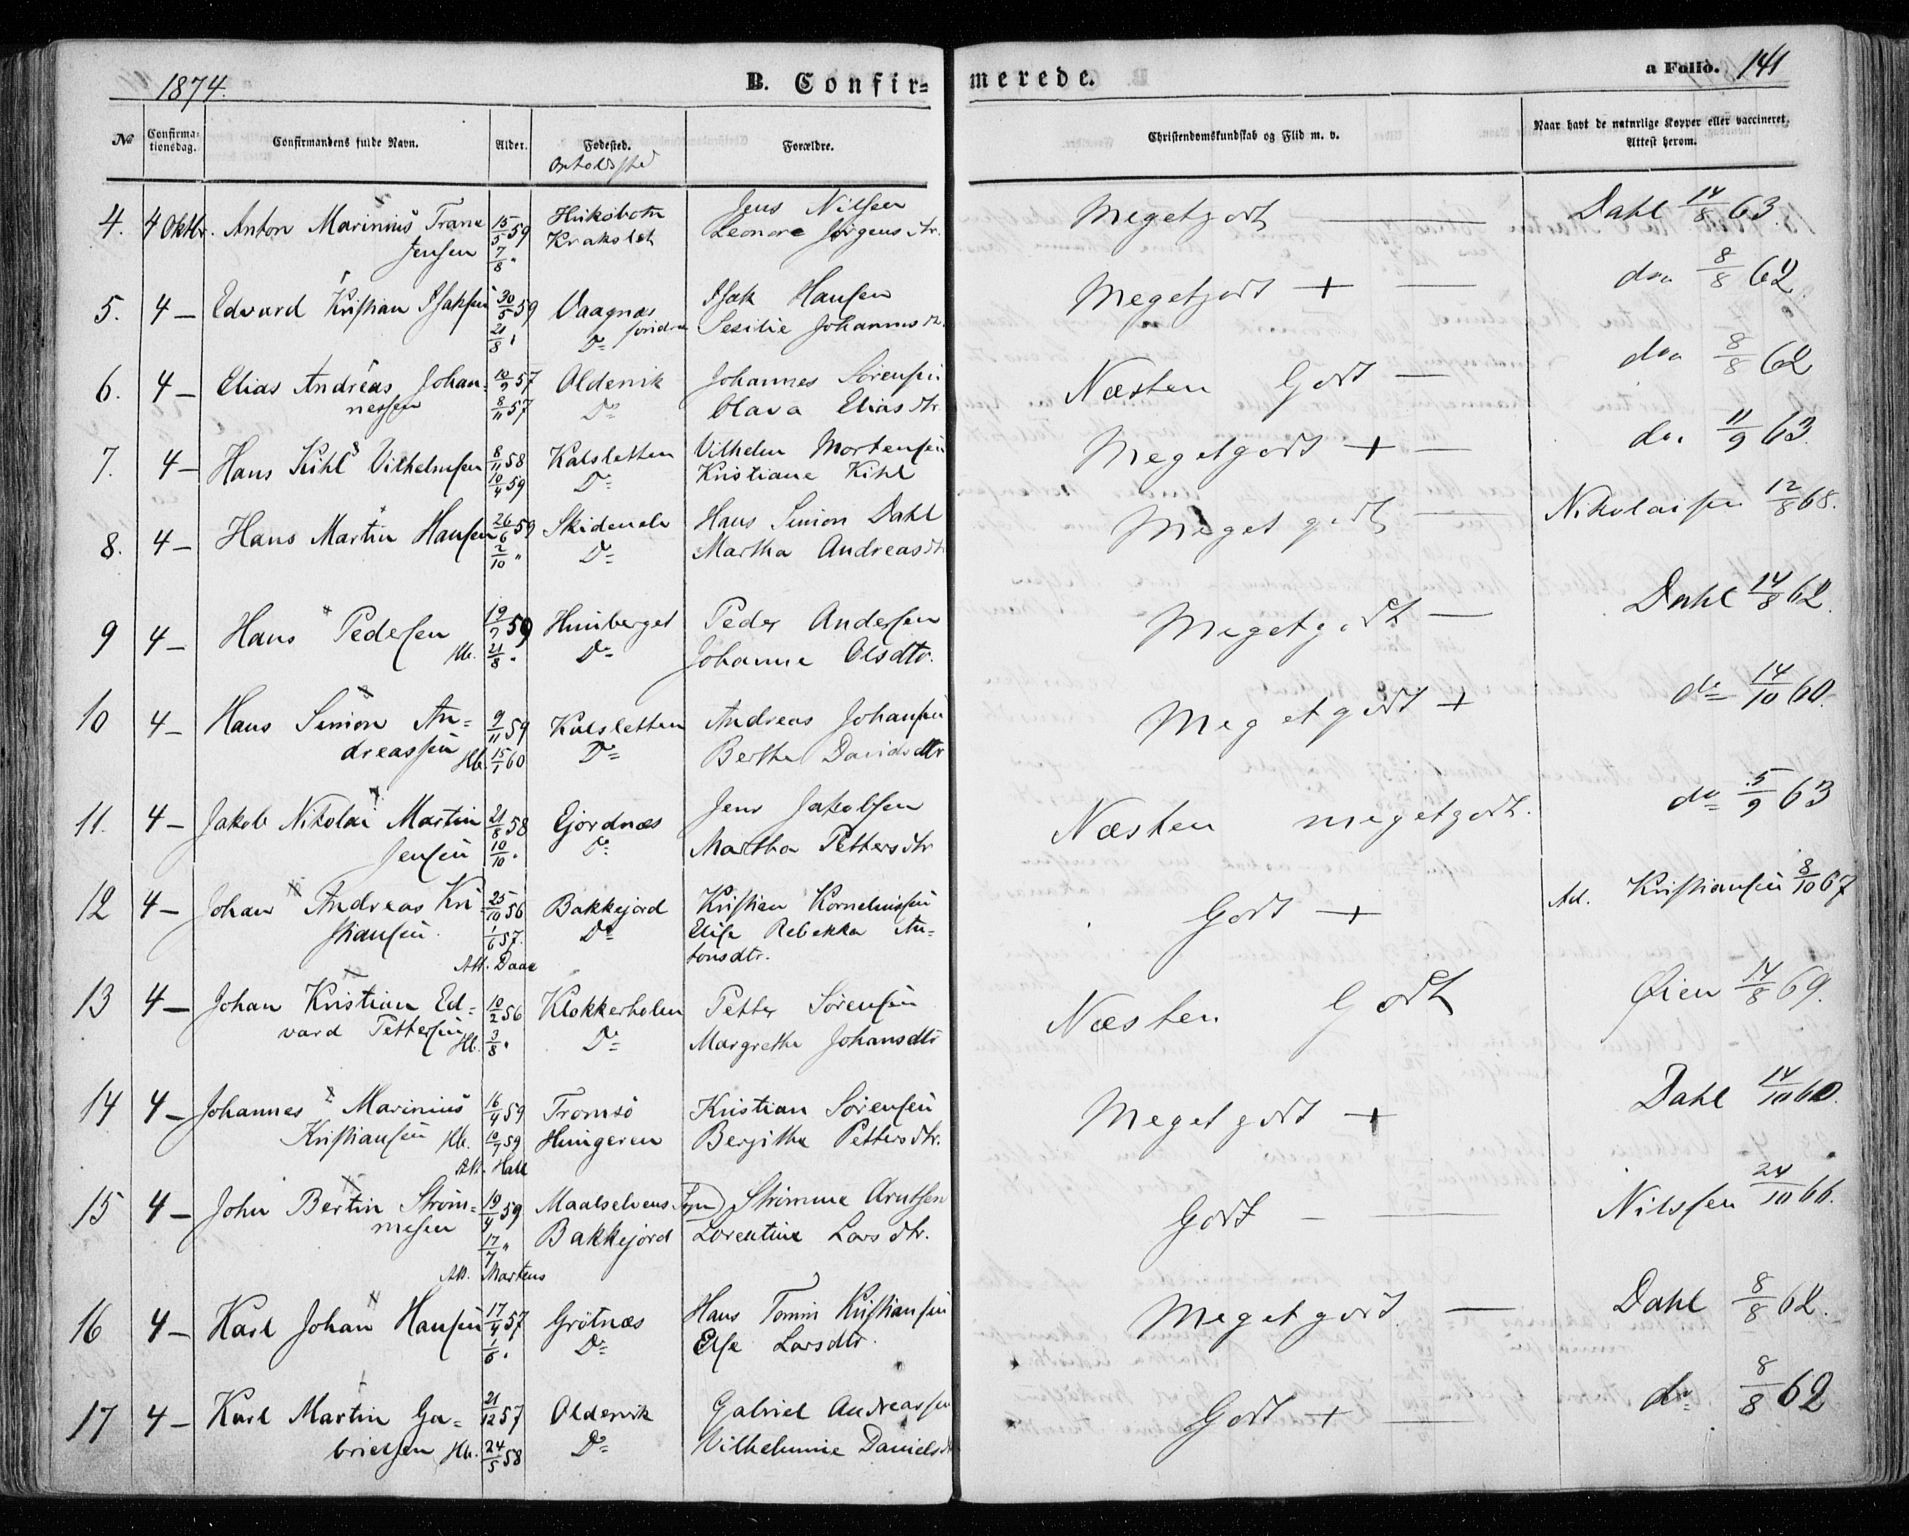 1874.
B. Confir=
merede.
a Folio. 141
No Confirma-tionsdag. Confirmandens fulde Navn. Alder. Fødested. Opholdssted Forældre. Christendomskundskab og Flid m. v. Naar havt de naturlige Kopper eller vaccineret. Attest herom.
4. 4 Oktbr. Anton Marinius Trane 15/5 59 Jens Nilsen Megetgodt — Dahl 14/8 63.
Jensen 7/8 " Krakslet Leonore Jørgensdtr.
5. 4 — Edvard Kristian Isaksen 30/5 59 Vaagnæs Isak Hansen Megetgodt + — do 8/8 62.
21/8 " Do Sesilie Johannesdtr.
6. 4 — Elias Andreas Johan- 10/9 57 Oldervik Johannes Sørensen Næsten Godt — do 8/8 62
nessen 8/11 57 Do Olava Eliasdtr.
7. 4 — Hans Kihl Vilhelmsen 8/11 58 Kalsletten Vilhelm Mortensen Megetgodt + — do. 11/9 63.
10/4 59 Do Kristiane Kihl
8. 4 — Hans Martin Hansen 26/6 59 Skidenelv Hans Simon Dahl Meget godt — Nikolaisen 12/8 68.
2/10 " Do Martha Andreasdtr
9 4 — Hans Pedersen 19/7 59 Hunberget Peder Andersen Megetgodt — Dahl 14/8 62.
Hb. 21/8 " Do Johanne Olsdtr.
10 4 — Hans Simon An- 9/11 59 Kalsletten Andreas Johansen Megetgodt + do 14/10 60.
dreassen Hb. 15/1 60 Do Berthe Davidsdtr
11. 4 — Jakob Nikolai Martin 21/8 58 Ejordnæs Jens Jakobsen Næsten megetgodt. do 5/9 63
Jensen 10/10 " Do Martha Pettersdtr
12 4 — Johan Andreas Kri 25/10 56 Bakkejord Kristian Kornelinssen Godt + Ad. Kristiansen 8/10 67
stiansen. 1/6 57. Do Elise Rebekka An-
Att. Daae tonsdtr.
13 4 — Johan Kristian Ed- 10/2 56 Klokkerholm Petter Sørensen Næsten Godt Øien 14/8 69.
vard Pettersen Hb. 3/8 " Do Margrethe Johansdtr
14 4 — Johannes Marinius 16/4 59 Tromsø Kristian Sørensen Megetgodt + Dahl 14/10 60.
Kristiansen Hb. 10/7 59 Hungeren Bergitha Pettersdtr.
Att. Hall
15 4 — John Bertin Strøm- 19/4 59 Maalselvens Sogn Strømme Arntsen Godt — Nilssen 24/10 66.
mesen 17/7 " Bakkejord Lorentine Larsdtr.
Att. Martens
16 4 — Karl Johan Hansen 17/4 57 Grötnæs Hans Tomin Kristiansen Megetgodt. — Dahl 8/8 62.
1/6 " Do Else Larsdtr.
17 4 — Karl Martin Ga- 21/12 57 Oldervik Gabriel Andreassen Godt + — do 8/8 62
brielsen Hb. 24/5 58 Do Vilhelmine Danielsdtr